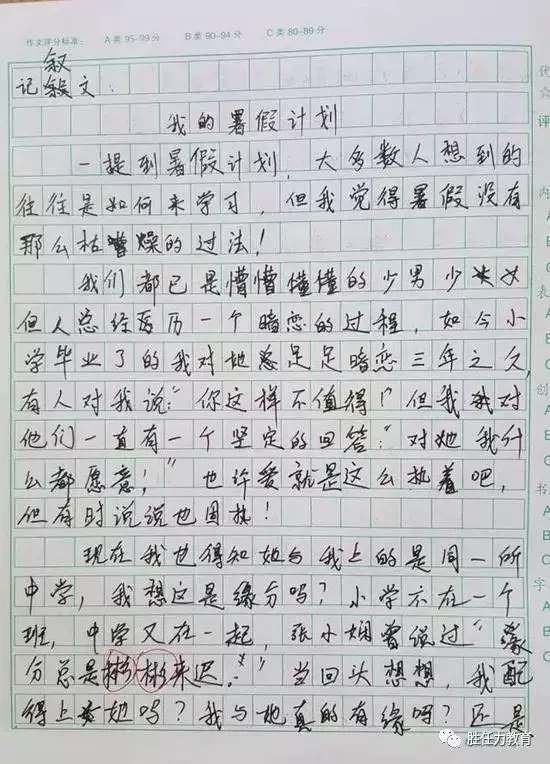 作文评分标准： A类 95-99分 B类 90-94分 C类 80-89分
叙
记叙文：
我的暑假计划
一提到暑假计划，大多数人想到的
往往是如何来学习，但我觉得暑假没有
那么枯燥的过法！
我们都已是懵懵懂懂的少男少女
但人总经历一个暗恋的过程，如今小
学毕业了的我对她足足暗恋三年之久，
有人对我说：“你这样不值得！”但我对
他们一直有一个坚定的回答：“对她我什
么都愿意！”也许爱就是这么执着吧，
但有时说说也固执！
现在我也得知她与我上的是同一所
中学，我想这是缘分吗？小学不在一个
班，中学又在一起，张小娴曾说过“缘
分总是彬彬来迟。”当回头想想，我配
得上她吗？我与她真的有缘吗？还是
代
评
内
A
表
创
A
B
C
书
A
B
C
字
胜任力教育